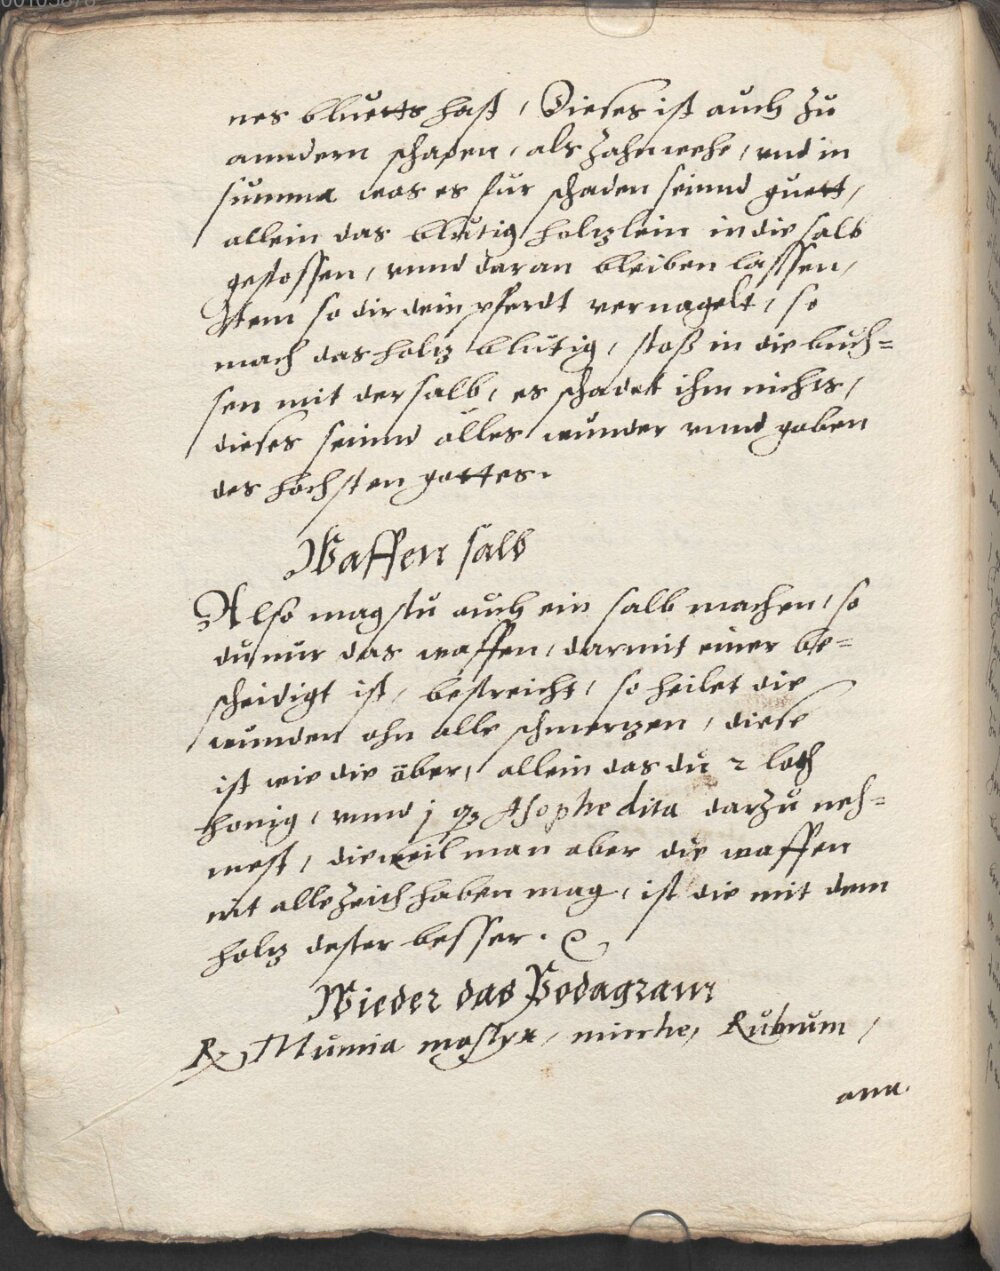 nes bluetts hast, Dieses ist auch zu
anndern schaden, als zahnwehe, vnd in
summa was es fur schaden seinnd guett,
allein das blutig holtzlein in die salb
gestossen, vnnd daran bleiben lassen,
Item so dir dein pferdt vernagelt, so
mach das holtz blutig, stoss in die buch=
sen mit der salb, es schadet ihm nichts,
dieses seinnd alles wunder vnnd gaben
des hochsten gottes.
Waffen salb
Also magstu auch ein salb machen, so
du nur das waffen, darmit einer be=
scheidigt ist, bestreicht, so heilet die
wunden ohn alle schmertzen, diese
ist wie die ober, allein das du 2 loth
honig, vnnd j Asophe dita darzu neh=
mest, dieweil man aber die waffen
nit allezeith haben mag, ist die mit dem
holtz dester besser.
Wieder das Bodagram
R Mumia mastyx, mirrhe, Rubrum,
ana.